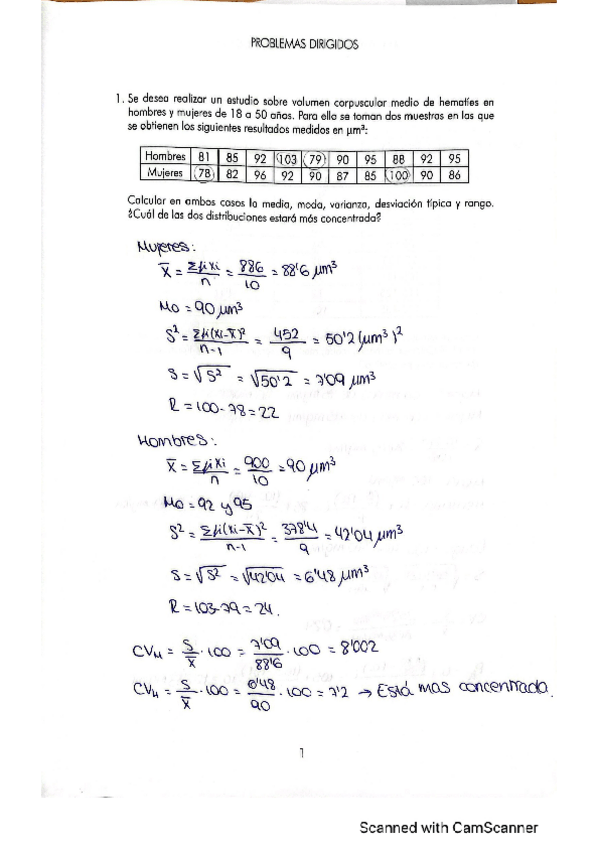 PROBLEMAS DIRIGIDOS
1. Se desea realizar un estudio sobre volumen corpuscular medio de hematíes en
hombres y mujeres de 18 a 50 años. Para ello se toman dos muestras en las que
se obtienen los siguientes resultados medidos en µm³:
Hombres 81 85 92 103 79 90 95 88 92 95
Mujeres 78 82 96 92 90 87 85 100 90 86
Calcular en ambos casos la media, moda, varianza, desviación típica y rango.
¿Cuál de las dos distribuciones estará más concentrada?
Mujeres:
x̄ = Σfixi/n = 886/10 = 88'6 µm³
Mo = 90 µm³
S² = Σfi(xi-x̄)²/n-1 = 452/9 = 50'2 (µm³)²
S = √S² = √50'2 = 7'09 µm³
R = 100-78 = 22
Hombres:
x̄ = Σfixi/n = 900/10 = 90 µm³
Mo = 92 y 95
S² = Σfi(xi-x̄)²/n-1 = 378'4/9 = 42'04 µm³
S = √S² = √42'04 = 6'48 µm³
R = 103-79 = 24.
CVM = S/x̄ · 100 = 7'09/88'6 · 100 = 8'002
CVH = S/x̄ · 100 = 6'48/90 · 100 = 7'2 → Está mas concentrada.
1
Scanned with CamScanner